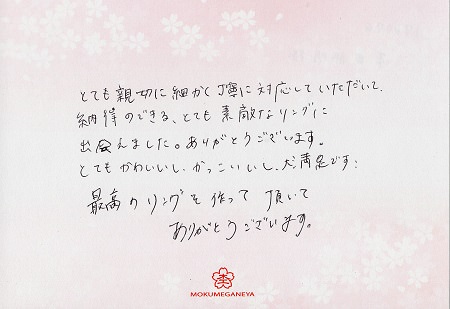 とても親切に細かく丁寧に対応していただいて、
納得のできる、とても素敵なリングに
出会えました。ありがとうございます。
とてもかわいいし、かっこいいし、大満足です!
最高のリングを作って頂いて
ありがとうございます。
MOKUMEGANEYA